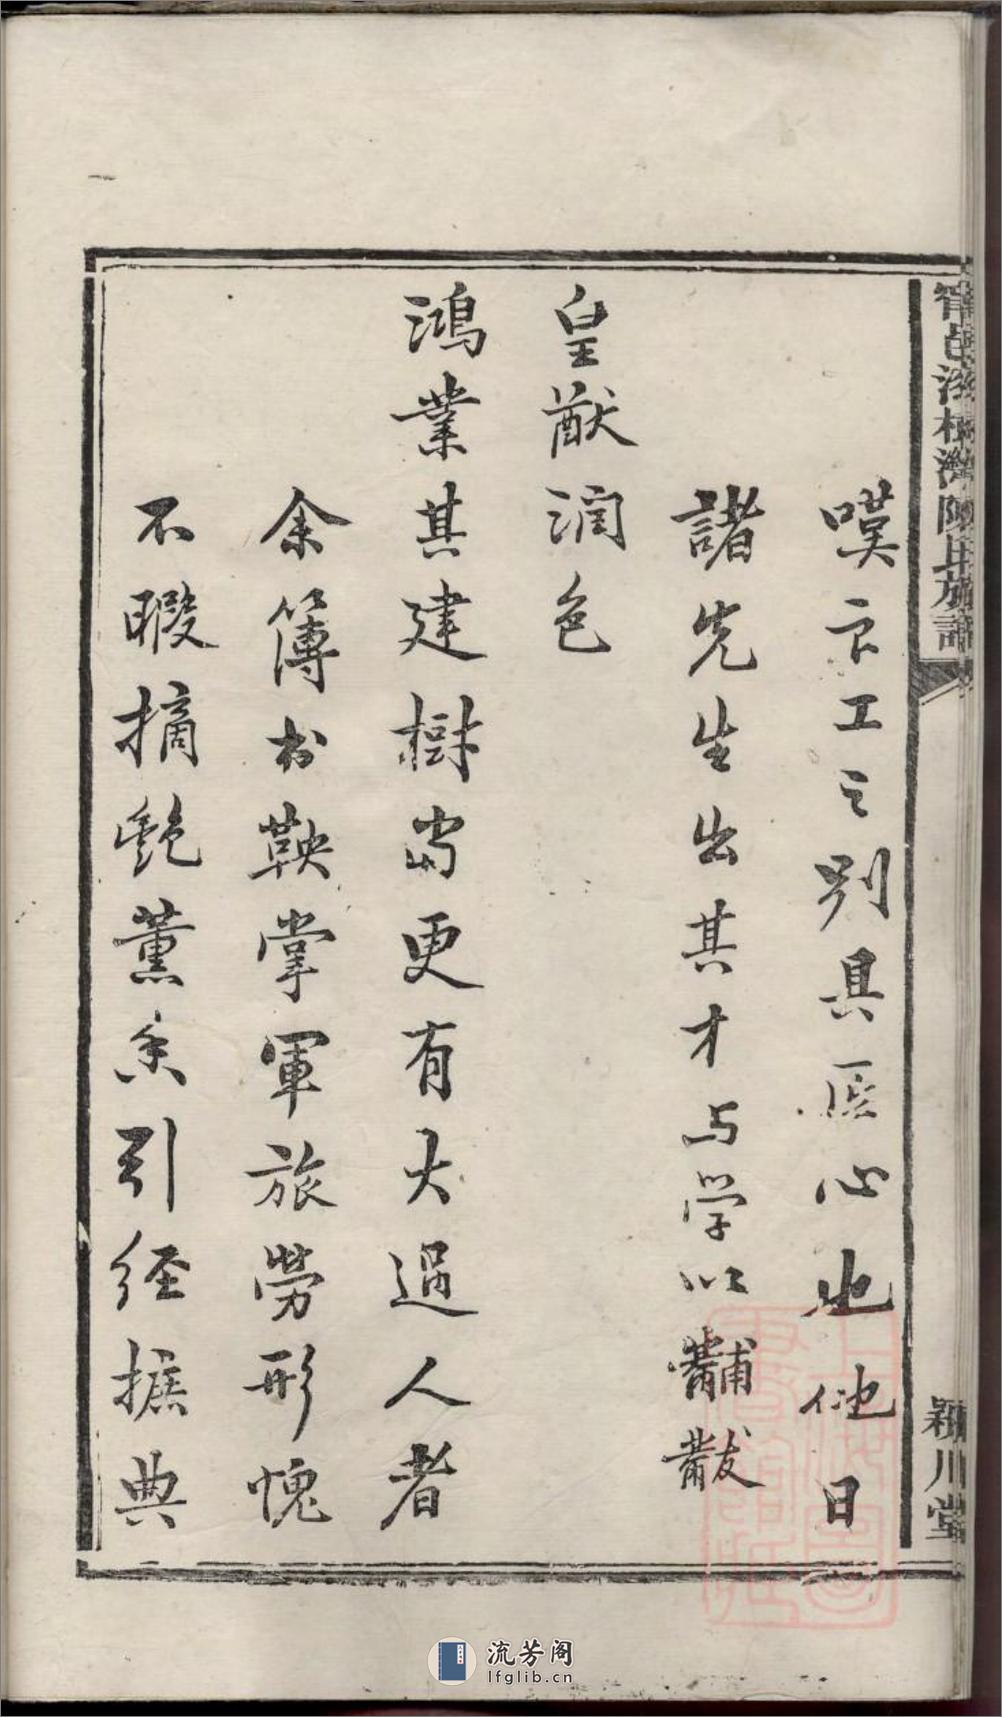 嘆良工之別具匠心也他日
諸先生出其才与学以黼黻
皇猷潤色
鴻業其建樹當更有大過人者
余簿书鞅掌軍旅勞形愧
不暇摘艷薰香引経摭典
陳氏族譜
潁川堂
流芳阁
lfglib.cn